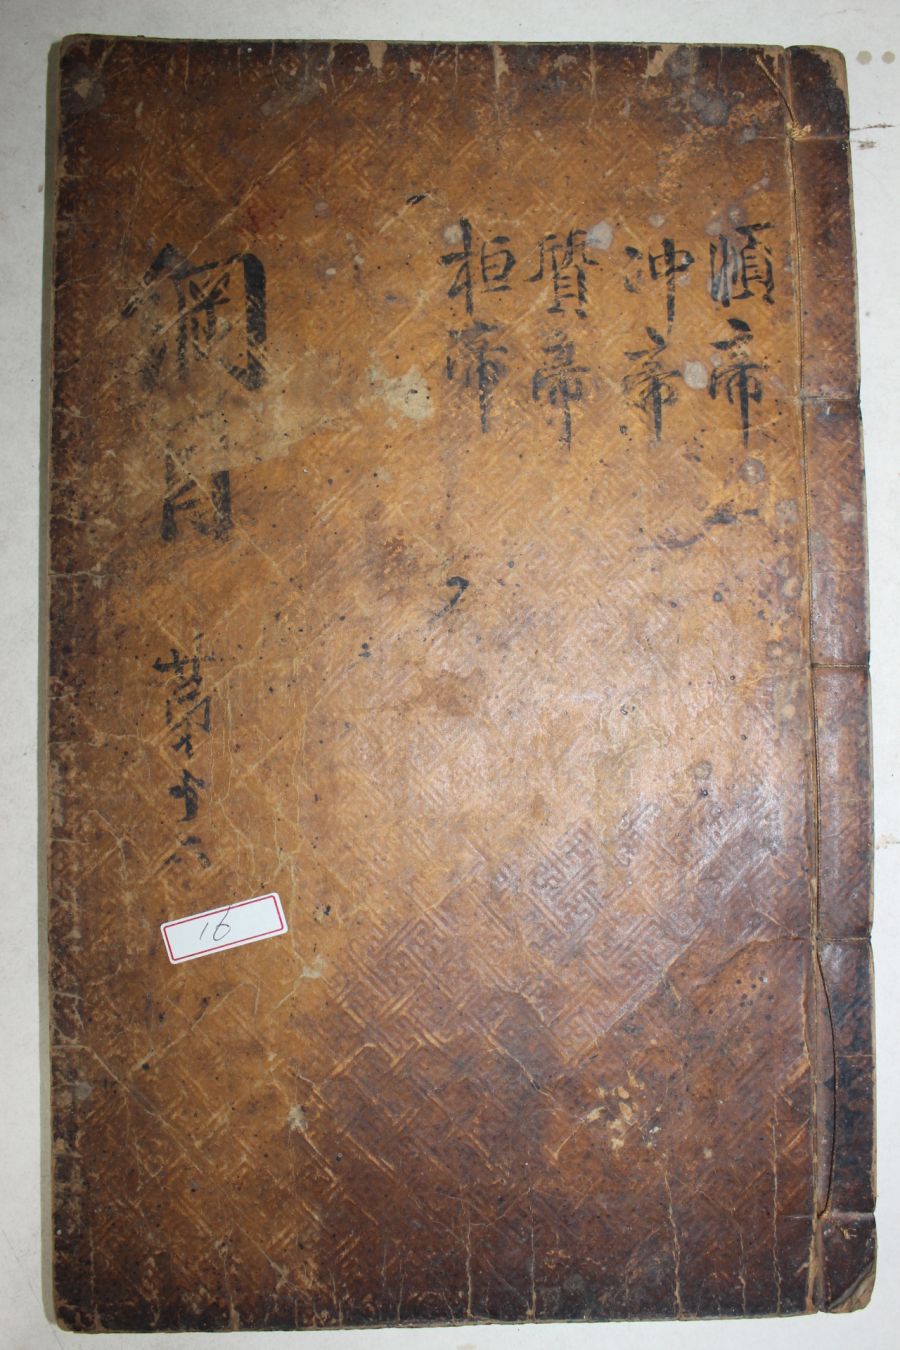 順帝
冲帝
質帝
桓帝
綱目
第十六
16